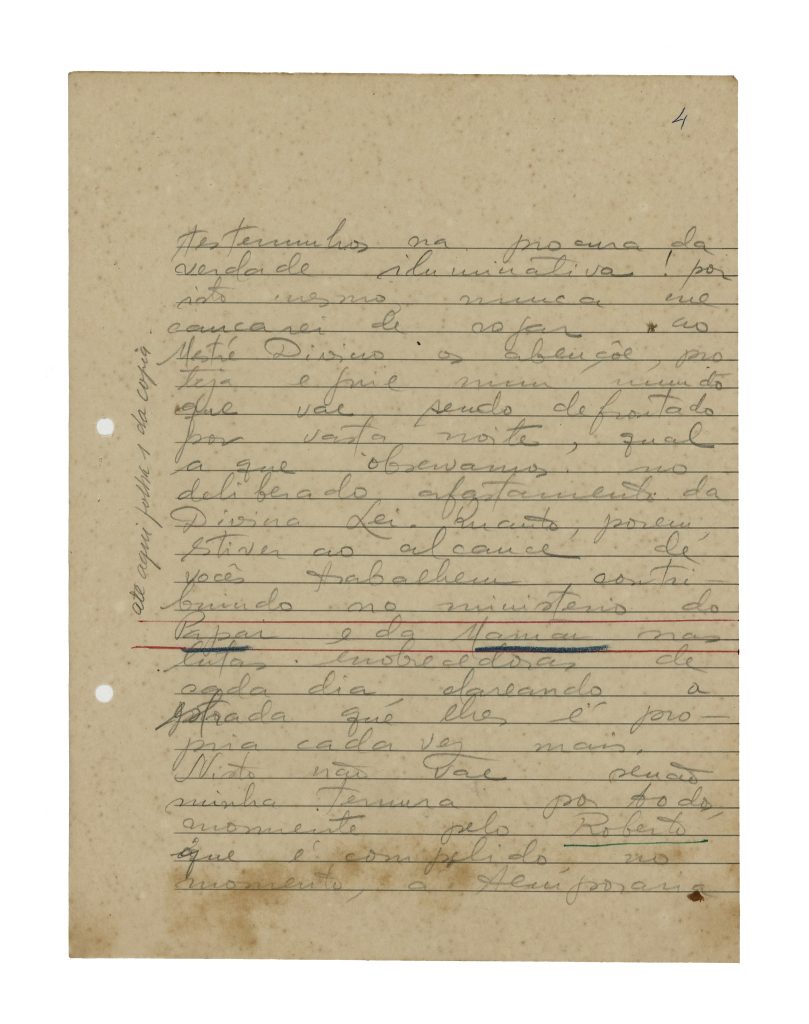 4
testemunhos na procura da
verdade iluminativa! por
isto mesmo, nunca me
cançarei de rogar ao
Mestre Divino os abençõe, pro
teja e guie num mundo
que vae sendo defrontado
por vasta noite, qual
a que observamos no
deliberado afastamento da
Divina Lei. Quanto, porem,
estiver ao alcance de
vocês trabalhem contri-
buindo no ministerio do
Papai e da Mamãe nas
lutas enobrecedoras de
cada dia clareando a
estrada que lhes é pro-
pria cada vez mais.
Nisto não vae senão
minha ternura por todos,
mormente pelo Roberto
que é compelido no
momento, a temporaria
até aqui folha 1 da copia.